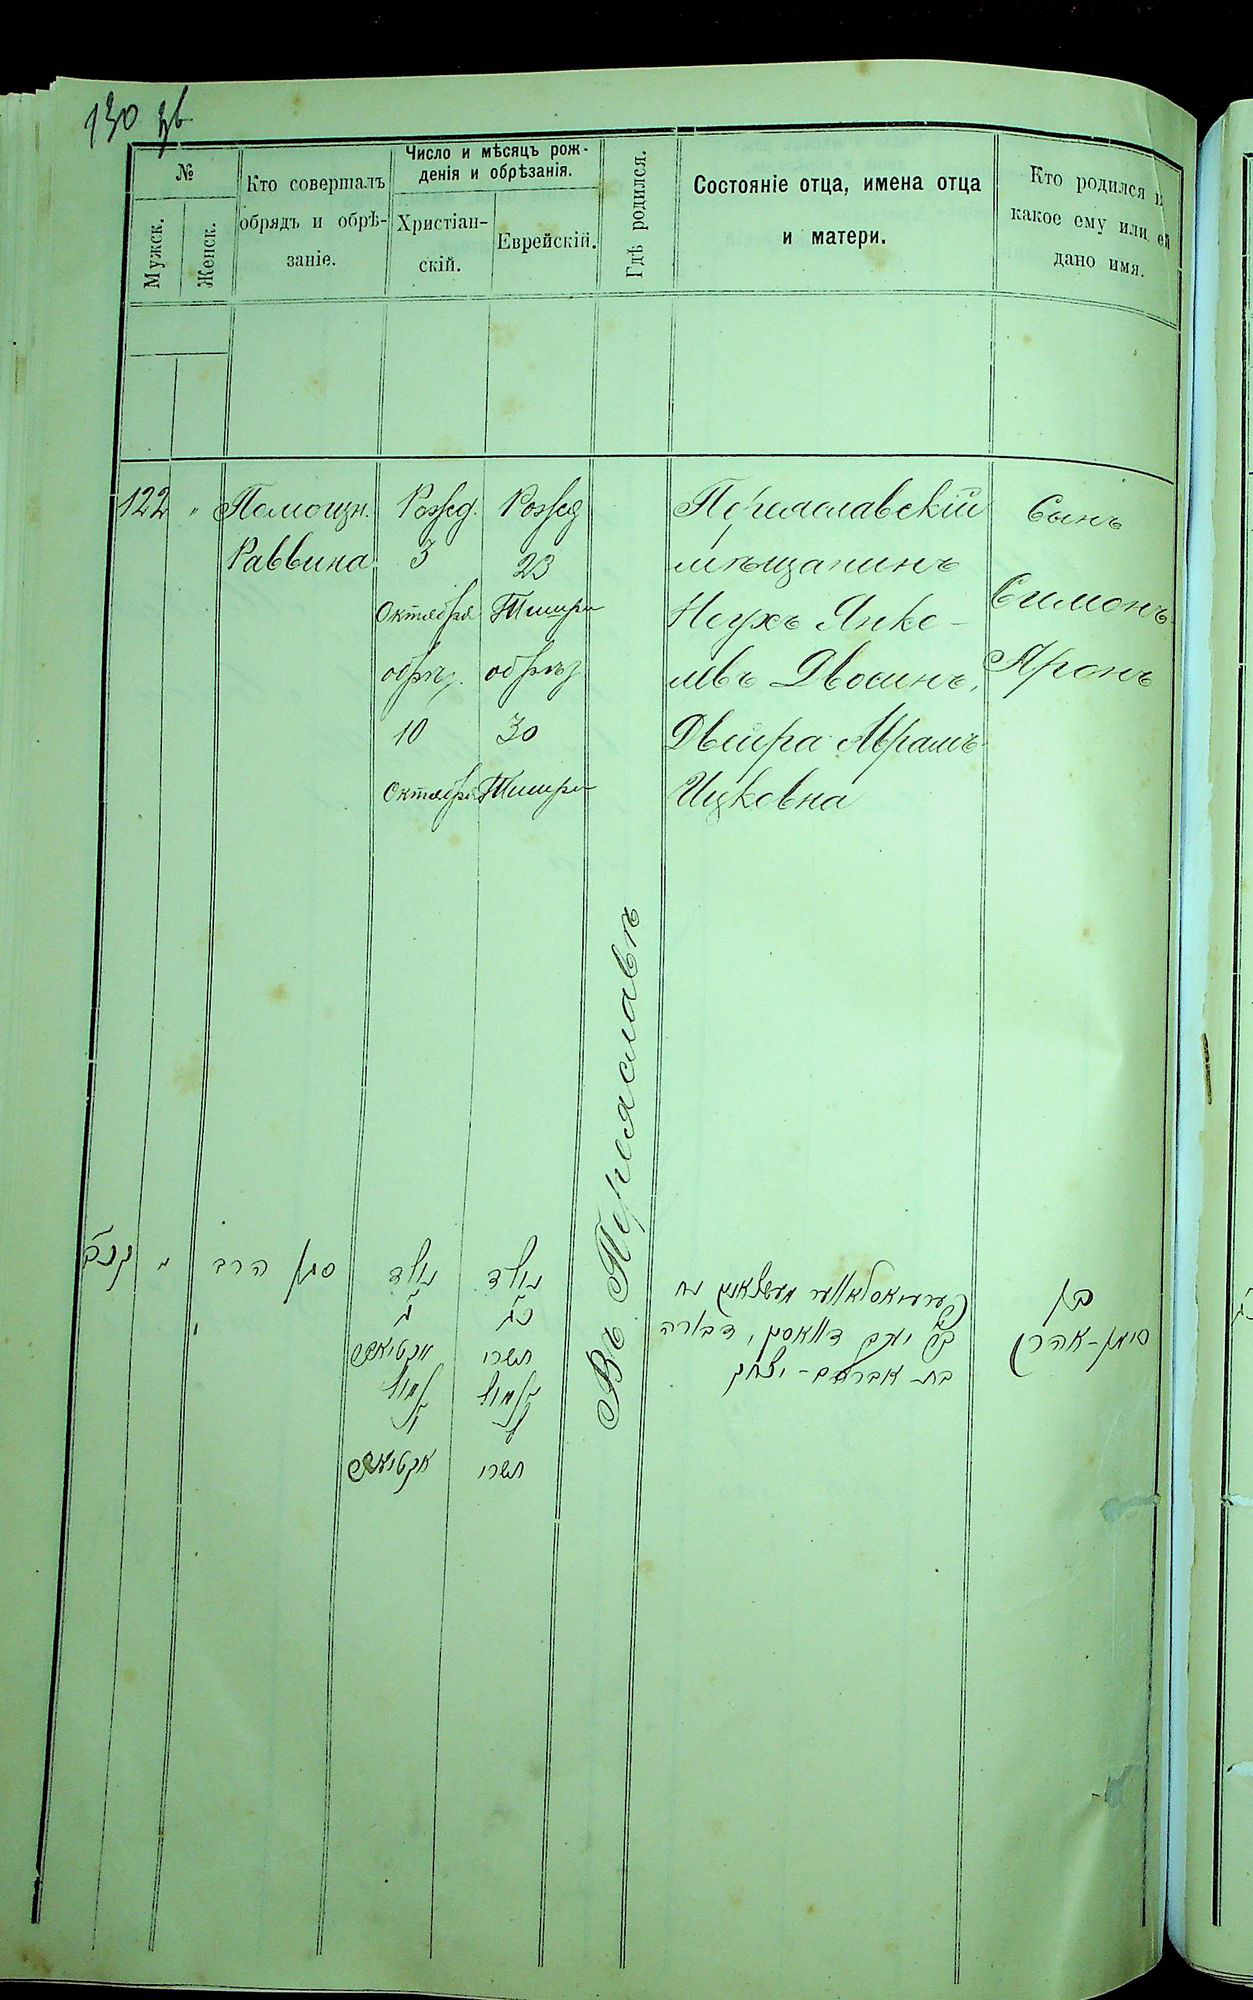 130 зв
№
Мужск.
Женск.
Кто совершалъ
обрядъ и обрѣ-
заніе.
Число и мѣсяцъ рож-
денія и обрѣзанія.
Христіан-
скій.
Еврейскій.
Гдѣ родился.
Состояніе отца, имена отца
и матери.
Кто родился и
какое ему или ей
дано имя.
122
"
Помощн.
Раввина
Рожд.
3
Октября
обрѣз.
10
Октября
Рожд
23
Тишри
обрѣз
30
Тишри
Въ Переяславѣ
Переяславскій
мѣщанинъ
Ноухъ Янке-
левъ Двосинъ,
Двейра Абрамъ-
Ицковна
Сынъ
Симонъ
Аронъ
קכב
"
סגן הרב
נולד
ג
אקטיאבר
נמול
י
אקטיאבר
נולד
כג
תשרי
נמול
ל
תשרי
נח
דוואסין, דבורה
בת אברהם-יצחק
בן
סימן-אהרן